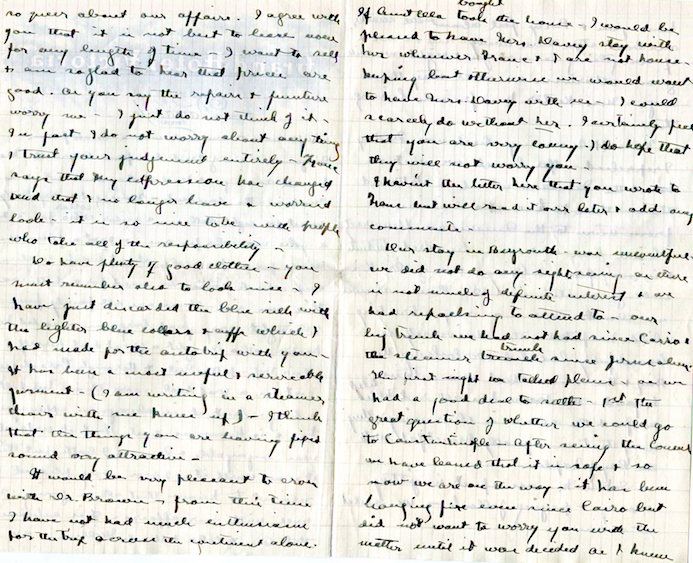 so queer about our affairs. I agree with
you that it is not best to leave
for any length of time - I want to sell
& am so glad to hear that prices are
good. As you say the repairs & furniture
worry me - I just do not think of it -
In fact I do not worry about anything
I trust your judgement entirely -
says that my expression has changed
and that I no longer have a worried
look - it is so nice to be with people
who take all of the responsibility -
Do have plenty of good clothes - you
must remember also to look nice - I
have just discarded the blue silk with
the lighter blue collars & cuffs which I
had made for the autotrip with you -
It has been a most useful & serviceable
garment - (I am writing in a steamer
chair with me knees up) - I think
that the things you are having fixed
sound very attractive -
It would be very pleasant to cross
with Dr. Brown - from this time
I have not had much enthusiasm
for the trip across the continent alone.
bought
If Aunt Lela took the house - I would be
pleased to have Mrs. Davey stay with
her whenever & I are not house-
keeping but otherwise we would want
to have Mrs. Davey with us - I could
scarcely do without her. I certainly feel
that you are very lonely - I do hope that
they will not worry you -
I haven't the letter here that you wrote to
but will read it over later & add any
comments -
Our stay in Beyrouth was uneventful -
we did not do any sightseeing as there
is not much of definite interest & we
had repacking to attend to - our
big trunk we had not had since Cairo &
trunk
the steamer since Jerusalem.
The first night we talked plans - as we
had a good deal to settle - 1st the
great question of whether we could go
to Constantinople - After seeing the Consul
we have learned that it is safe & so
now we are on the way - it has been
hanging fire ever since Cairo but
did not want to worry you with the
matter until it was decided as I knew